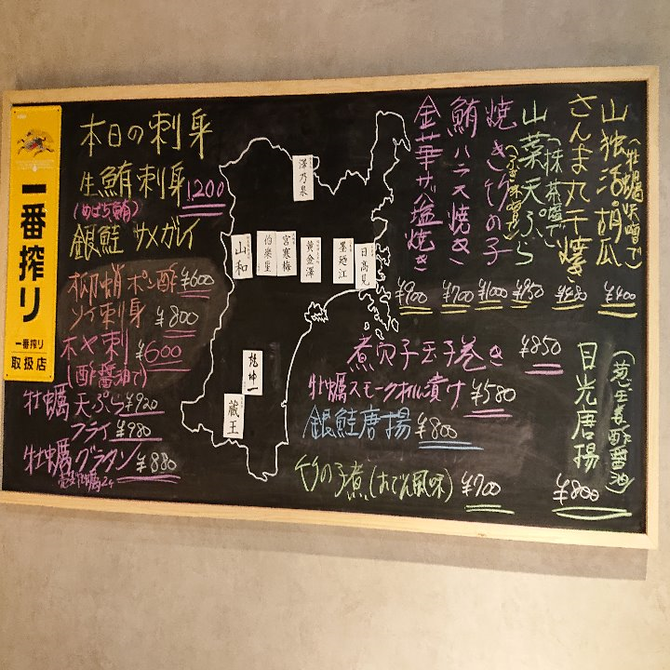 一番搾り
一番搾り
取扱店
本日の刺身
生鮪刺身 1200
(めばち鮪)
銀鮭 サメガレイ
柳蛸ポン酢 ¥600
ソイ刺身 ¥800
ホヤ刺 ¥600
(酢醤油で)
牡蠣天ぷら ¥920
フライ ¥980
牡蠣グラタン ¥880
澤乃泉
山和
伯楽星
宮寒梅
黄金澤
墨廼江
日高見
乾坤一
蔵王
山独活胡瓜 ¥400
(牡蠣味噌で)
さんま丸干焼 ¥480
山菜天ぷら ¥950
(抹茶塩で)
焼き竹の子 ¥1000
鮪ハラス焼き ¥700
金華サバ塩焼き ¥900
煮穴子玉子巻き ¥850
牡蠣スモークオイル漬け ¥580
銀鮭唐揚 ¥800
竹の子煮(おでん風味) ¥700
目光唐揚 ¥800
(葱生姜酢醤油)